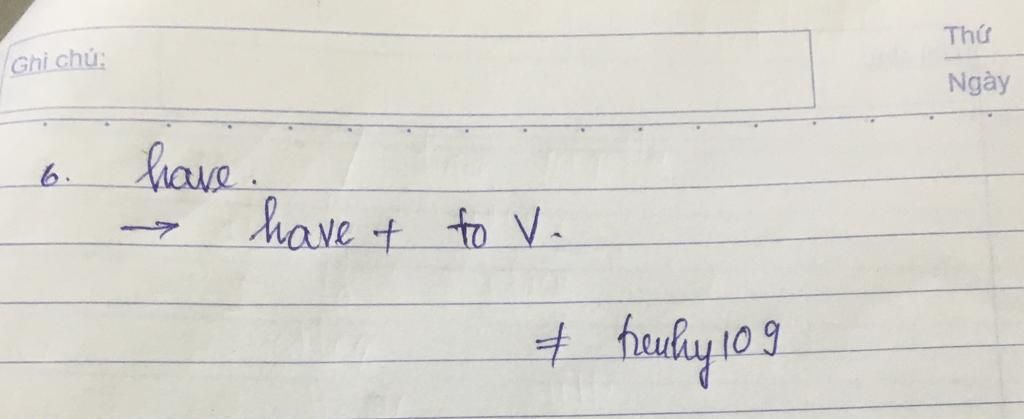 Ghi chú:
Thứ
Ngày
6. have.
→ have + to V.